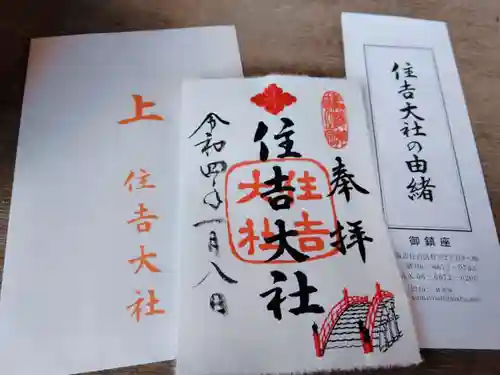 上
住吉大社
奉拝
住吉大社
住吉
大社
令和四年一月八日
住吉大社の由緒
御鎮座